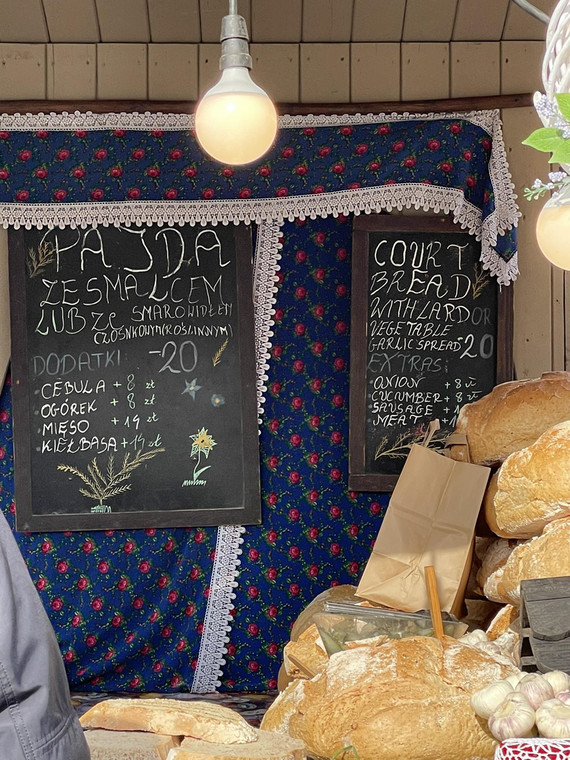 PAJDA
ZE SMALCEM
LUB ZE SMAROWIDŁEM
CZOSNKOWYM (ROŚLINNYM)
DODATKI: -20
CEBULA + 8 zł
OGÓREK + 8 zł
MIĘSO + 14 zł
KIEŁBASA + 14 zł
COURT
BREAD
WITH LARD OR
VEGETABLE
GARLIC SPREAD 20
EXTRAS:
ONION + 8 zł
CUCUMBER + 8 zł
SAUSAGE + 1
MEAT